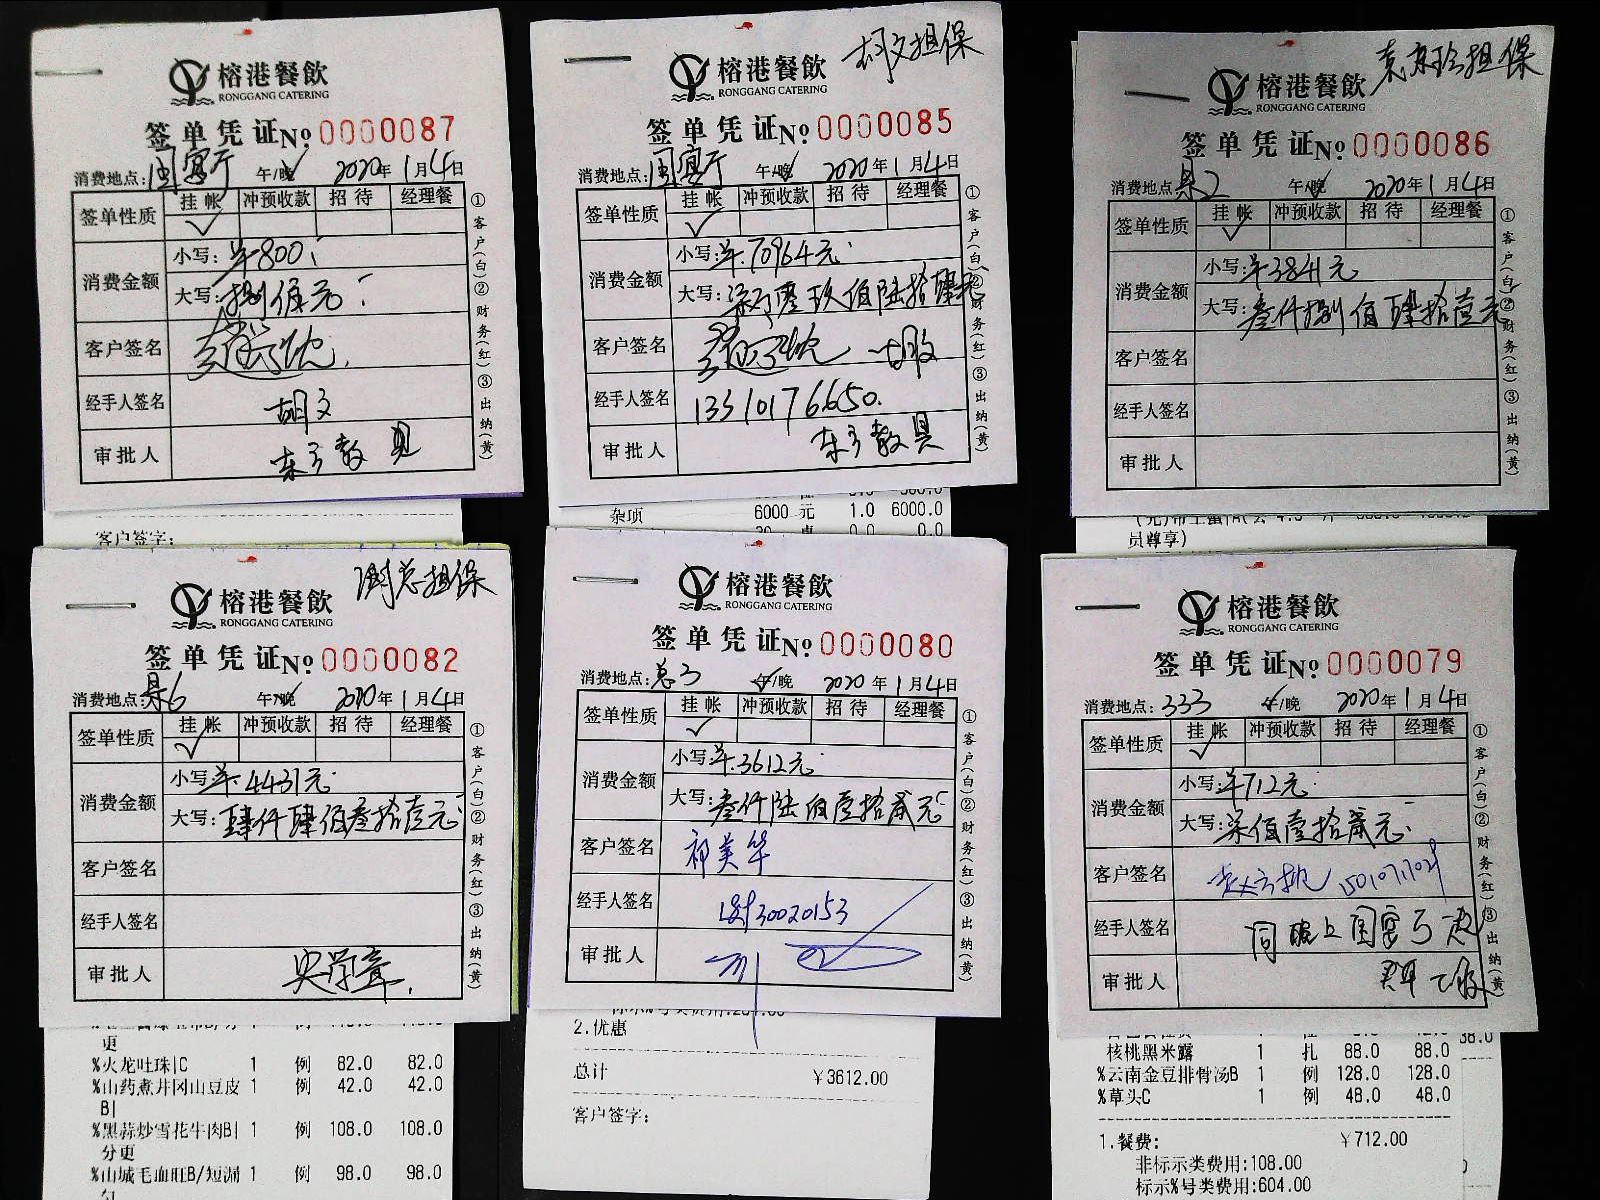 榕港餐飲
RONGGANG CATERING
签单凭证 No 0000087
消费地点: 国宴厅 午/晚 2020年1月4日
签单性质 挂帐 冲预收款 招待 经理餐
✓
消费金额
小写: ¥800
大写: 捌佰元
客户签名
经手人签名 胡文
审批人
①客户(白)②财务(红)③出纳(黄)
客户签字:
胡文担保
榕港餐飲
RONGGANG CATERING
签单凭证 No 0000085
消费地点: 国宴厅 午/晚 2020年1月4日
签单性质 挂帐 冲预收款 招待 经理餐
✓
消费金额
小写: ¥70964元
大写: 柒万零玖佰陆拾肆元
客户签名
经手人签名 13310176650
审批人
①客户(白)②财务(红)③出纳(黄)
杂项 6000 元 1.0 6000.0
担保
榕港餐飲
RONGGANG CATERING
签单凭证 No 0000086
消费地点: 午/晚 2020年1月4日
签单性质 挂帐 冲预收款 招待 经理餐
✓
消费金额
小写: ¥3841元
大写: 叁仟捌佰肆拾壹元
客户签名
经手人签名
审批人
①客户(白)②财务(红)③出纳(黄)
员尊享)
担保
榕港餐飲
RONGGANG CATERING
签单凭证 No 0000082
消费地点: 午/晚 2020年1月4日
签单性质 挂帐 冲预收款 招待 经理餐
✓
消费金额
小写: ¥4431元
大写: 肆仟肆佰叁拾壹元
客户签名
经手人签名
审批人 史学章
①客户(白)②财务(红)③出纳(黄)
更
%火龙吐珠|C 1 例 82.0 82.0
%山药煮井冈山豆皮 1 例 42.0 42.0
B|
%黑蒜炒雪花牛肉B| 1 例 108.0 108.0
分更
%山城毛血旺B/短漏 1 例 98.0 98.0
榕港餐飲
RONGGANG CATERING
签单凭证 No 0000080
消费地点: 总3 午/晚 2020年1月4日
签单性质 挂帐 冲预收款 招待 经理餐
✓
消费金额
小写: ¥3612元
大写: 叁仟陆佰壹拾贰元
客户签名 祁美华
经手人签名
审批人
①客户(白)②财务(红)③出纳(黄)
2.优惠
总计 ¥3612.00
客户签字:
榕港餐飲
RONGGANG CATERING
签单凭证 No 0000079
消费地点: 333 午/晚 2020年1月4日
签单性质 挂帐 冲预收款 招待 经理餐
✓
消费金额
小写: ¥712元
大写: 柒佰壹拾贰元
客户签名
经手人签名 同晚上国宴厅一起
审批人
①客户(白)②财务(红)③出纳(黄)
核桃黑米露 1 扎 88.0 88.0
%云南金豆排骨汤B 1 例 128.0 128.0
%草头C 1 例 48.0 48.0
1.餐费: ¥712.00
非标示类费用:108.00
标示%号类费用:604.00